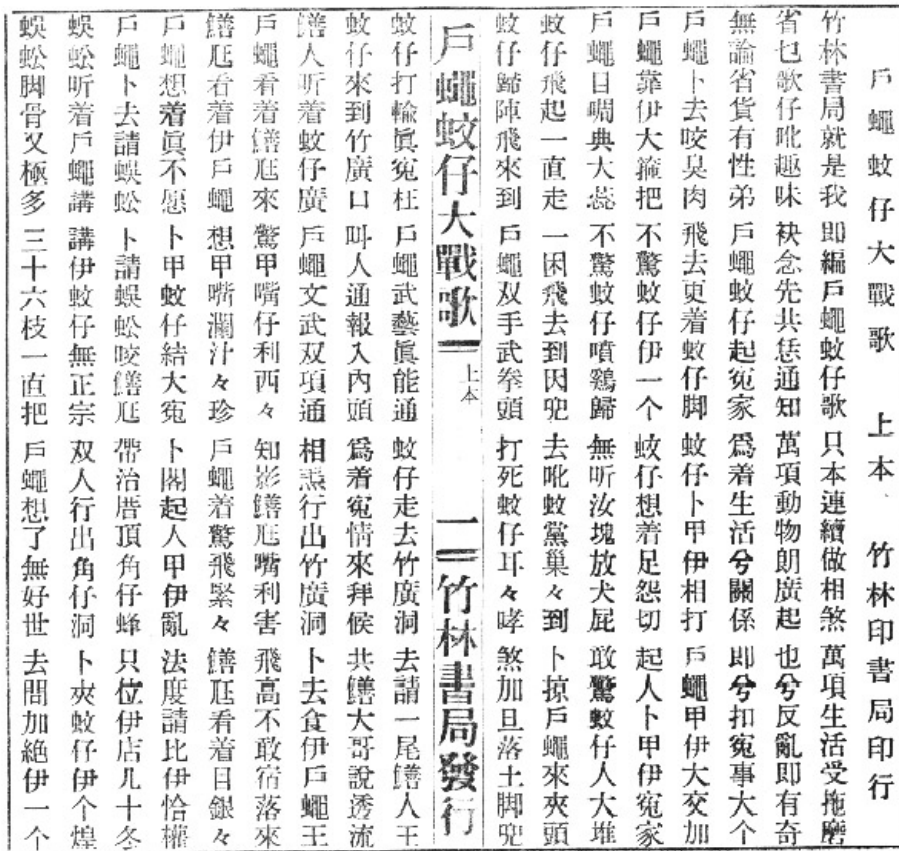 戶蠅蚊仔大戰歌 上本 竹林印書局印行
竹林書局就是我 即編戶蠅蚊仔歌 只本連續做相煞 萬項生活受拖磨
省乜歌仔吪趣味 袂念先共恁通知 萬項動物朗廣起 也兮反亂即有奇
無論省貨有性弟 戶蠅蚊仔起冤家 為着生活兮關係 即兮扣冤事大个
戶蠅卜去咬臭肉 飛去更着蚊仔脚 蚊仔卜甲伊相打 戶蠅甲伊大交加
戶蠅靠伊大箍把 不驚蚊仔伊一个 蚊仔想着足怨切 起人卜甲伊冤家
戶蠅日啁典大蕊 不驚蚊仔噴鷄歸 無听汝塊放犬屁 敢驚蚊仔人大堆
蚊仔飛起一直走 一困飛去到因兜 去吪蚊黨巢々到 卜掠戶蠅來夾頭
蚊仔歸陣飛來到 戶蠅双手武拳頭 打死蚊仔耳々哮 煞加旦落土脚兜
戶蠅蚊仔大戰歌 上本 一 竹林書局發行
蚊仔打輸眞冤枉 戶蠅武藝眞能通 蚊仔走去竹廣洞 去請一尾鱔人王
蚊仔來到竹廣口 叫人通報入內頭 為着冤情來拜候 共鱔大哥說透流
鱔人听着蚊仔廣 戶蠅文武双項通 相𤆬行出竹廣洞 卜去食伊戶蠅王
戶蠅看着鱔尫來 驚甲嘴仔利西々 知影鱔尫嘴利害 飛高不敢宿落來
鱔尫看着伊戶蠅 想甲嘴瀾汁々珍 戶蠅着驚飛緊々 鱔尫看着目銀々
戶蠅想着眞不愿 卜甲蚊仔結大冤 卜閣起人甲伊亂 法度請比伊恰權
戶蠅卜去請蜈蚣 卜請蜈蚣咬鱔尫 帶治厝頂角仔蜂 只位伊店几十冬
蜈蚣听着戶蠅講 講伊蚊仔無正宗 双人行出角仔洞 卜夾蚊仔伊个煌
蜈蚣脚骨又極多 三十六枝一直把 戶蠅想了無好世 去間加絕伊一个